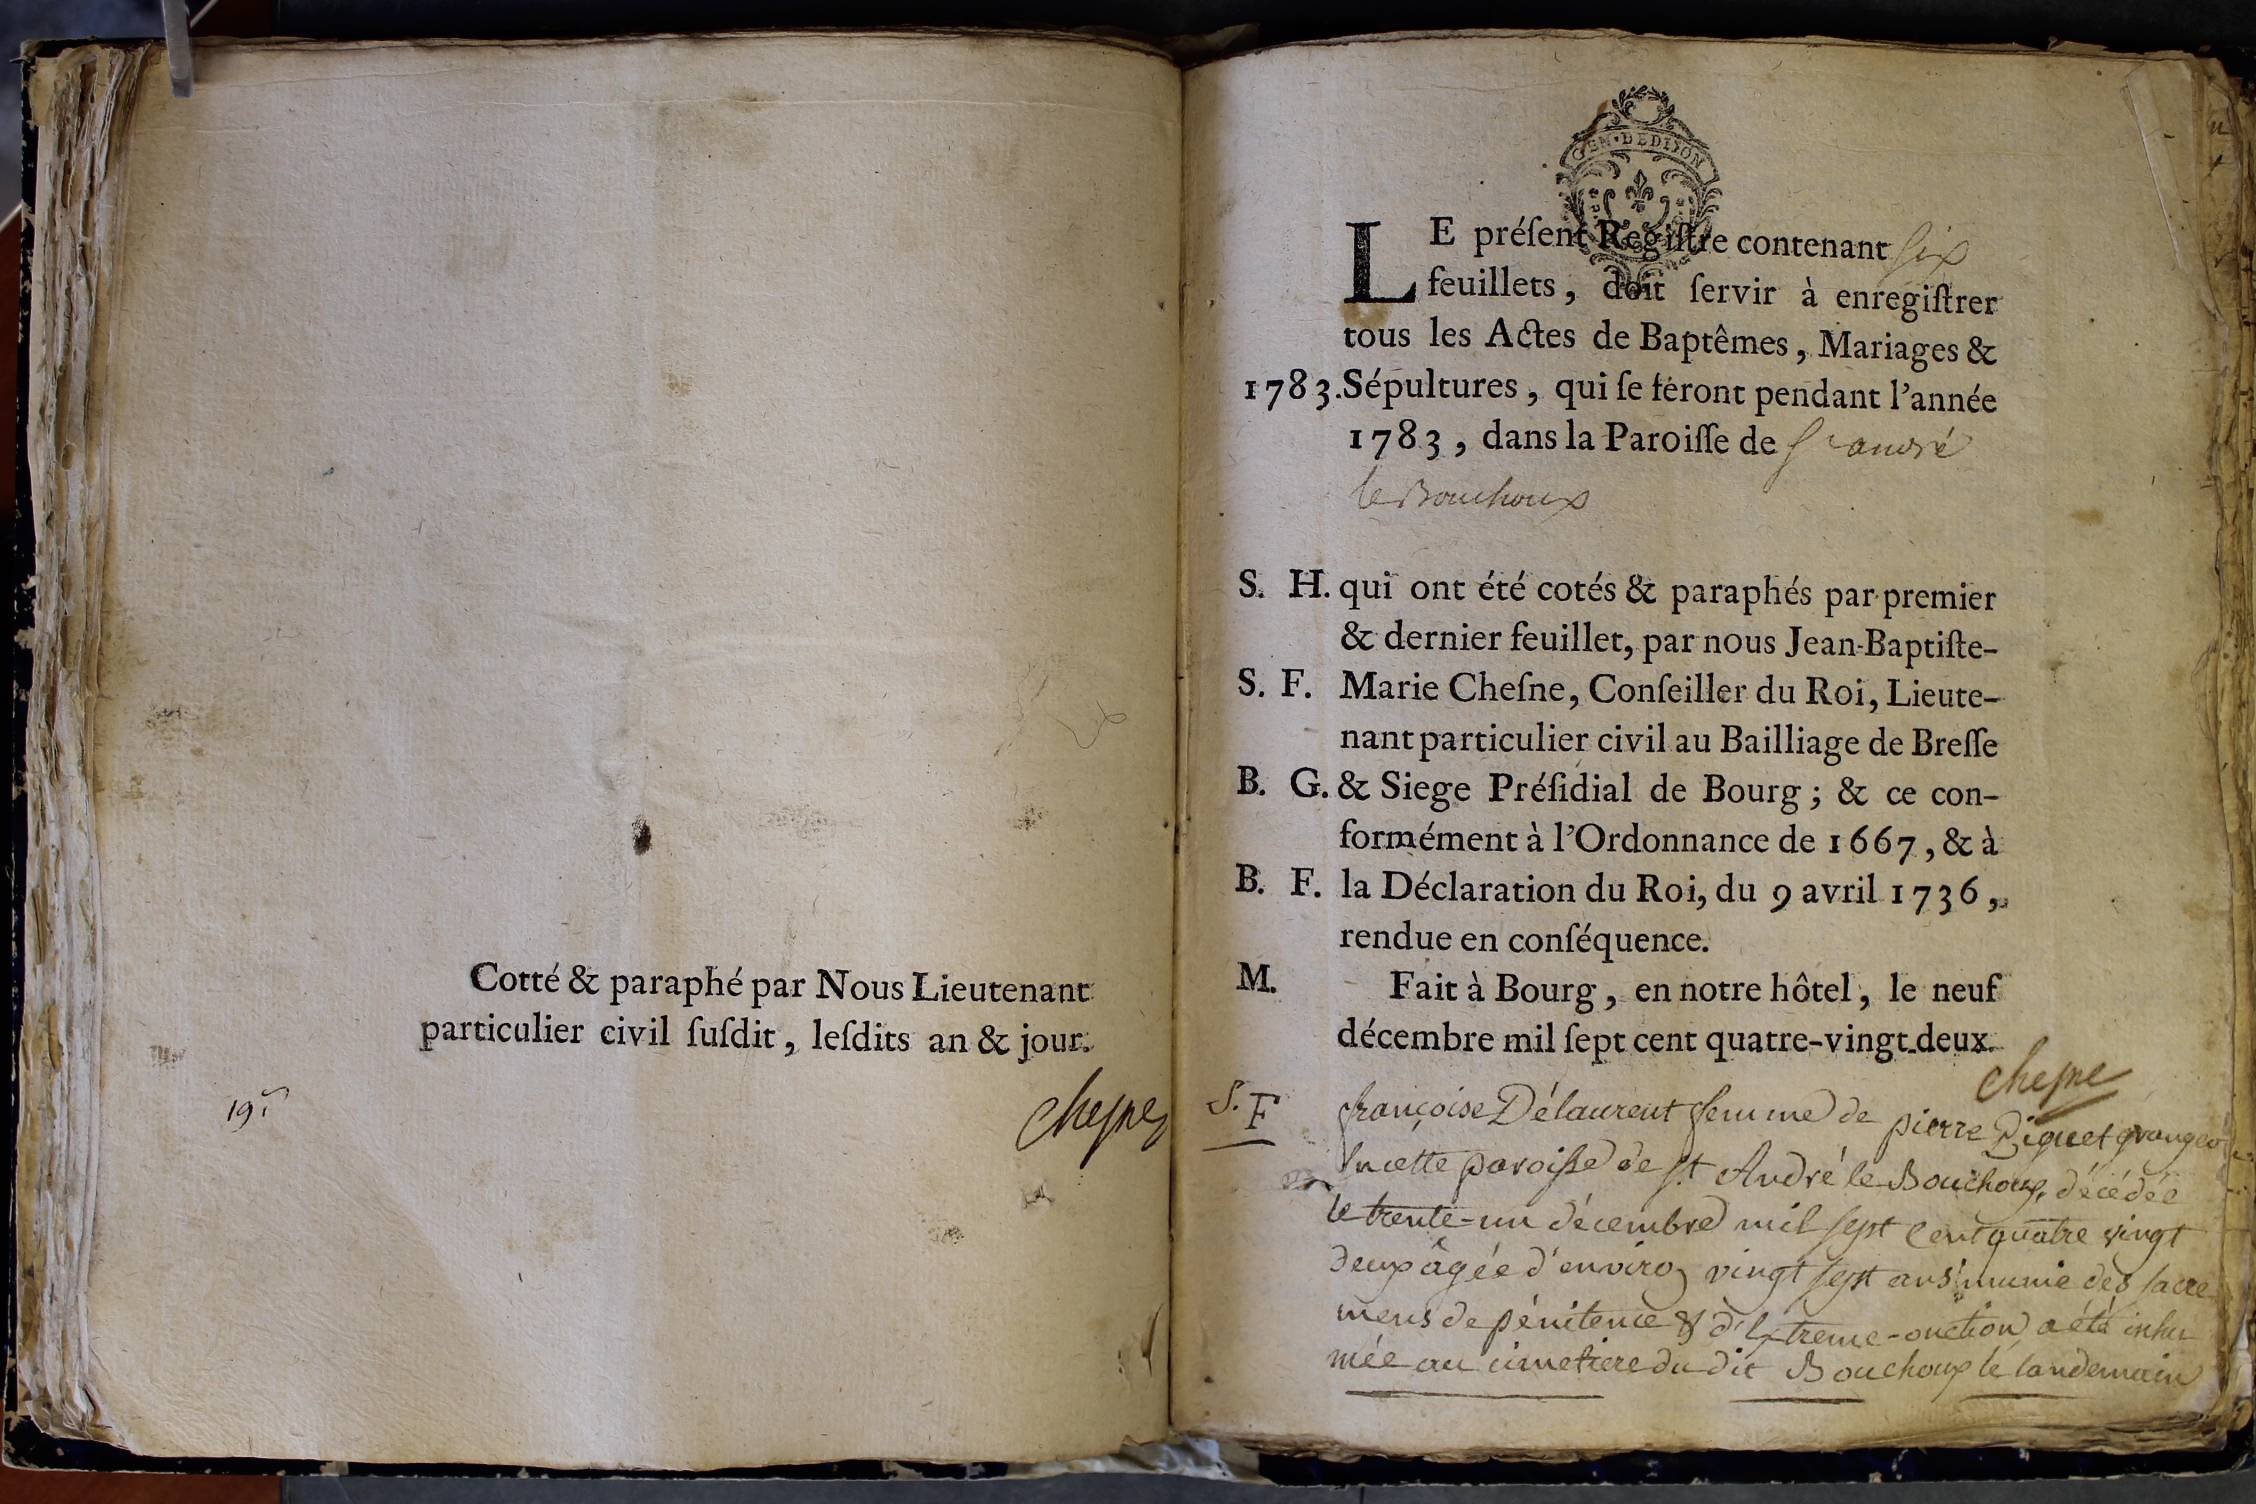 Cotté & paraphé par Nous Lieutenant
particulier civil ſuſdit, leſdits an & jour.
cheſne
GEN · DE DIJON
LE préſent Regiſtre contenant six
feuillets, doit ſervir à enregiſtrer
tous les Actes de Baptêmes, Mariages &
1783. Sépultures, qui ſe feront pendant l'année
1783, dans la Paroiſſe de St andré
le Bouchoux
S. H. qui ont été cotés & paraphés par premier
& dernier feuillet, par nous Jean-Baptiſte-
S. F. Marie Cheſne, Conſeiller du Roi, Lieute-
nant particulier civil au Bailliage de Breſſe
B. G. & Siege Préſidial de Bourg; & ce con-
formément à l'Ordonnance de 1667, & à
B. F. la Déclaration du Roi, du 9 avril 1736,
rendue en conſéquence.
M. Fait à Bourg, en notre hôtel, le neuf
décembre mil ſept cent quatre-vingt-deux.
cheſne
S. F françoise Délaurent femme de pierre Piquet
en cette paroiſse de St André le Bouchoux, décédée
le trente-un décembre mil sept cent quatre vingt
deux âgée d'environ vingt sept ans munie des sacre
mens de pénitence & d'extreme-onction a été inhu
mée au cimetiere du dit Bouchoux le landemain